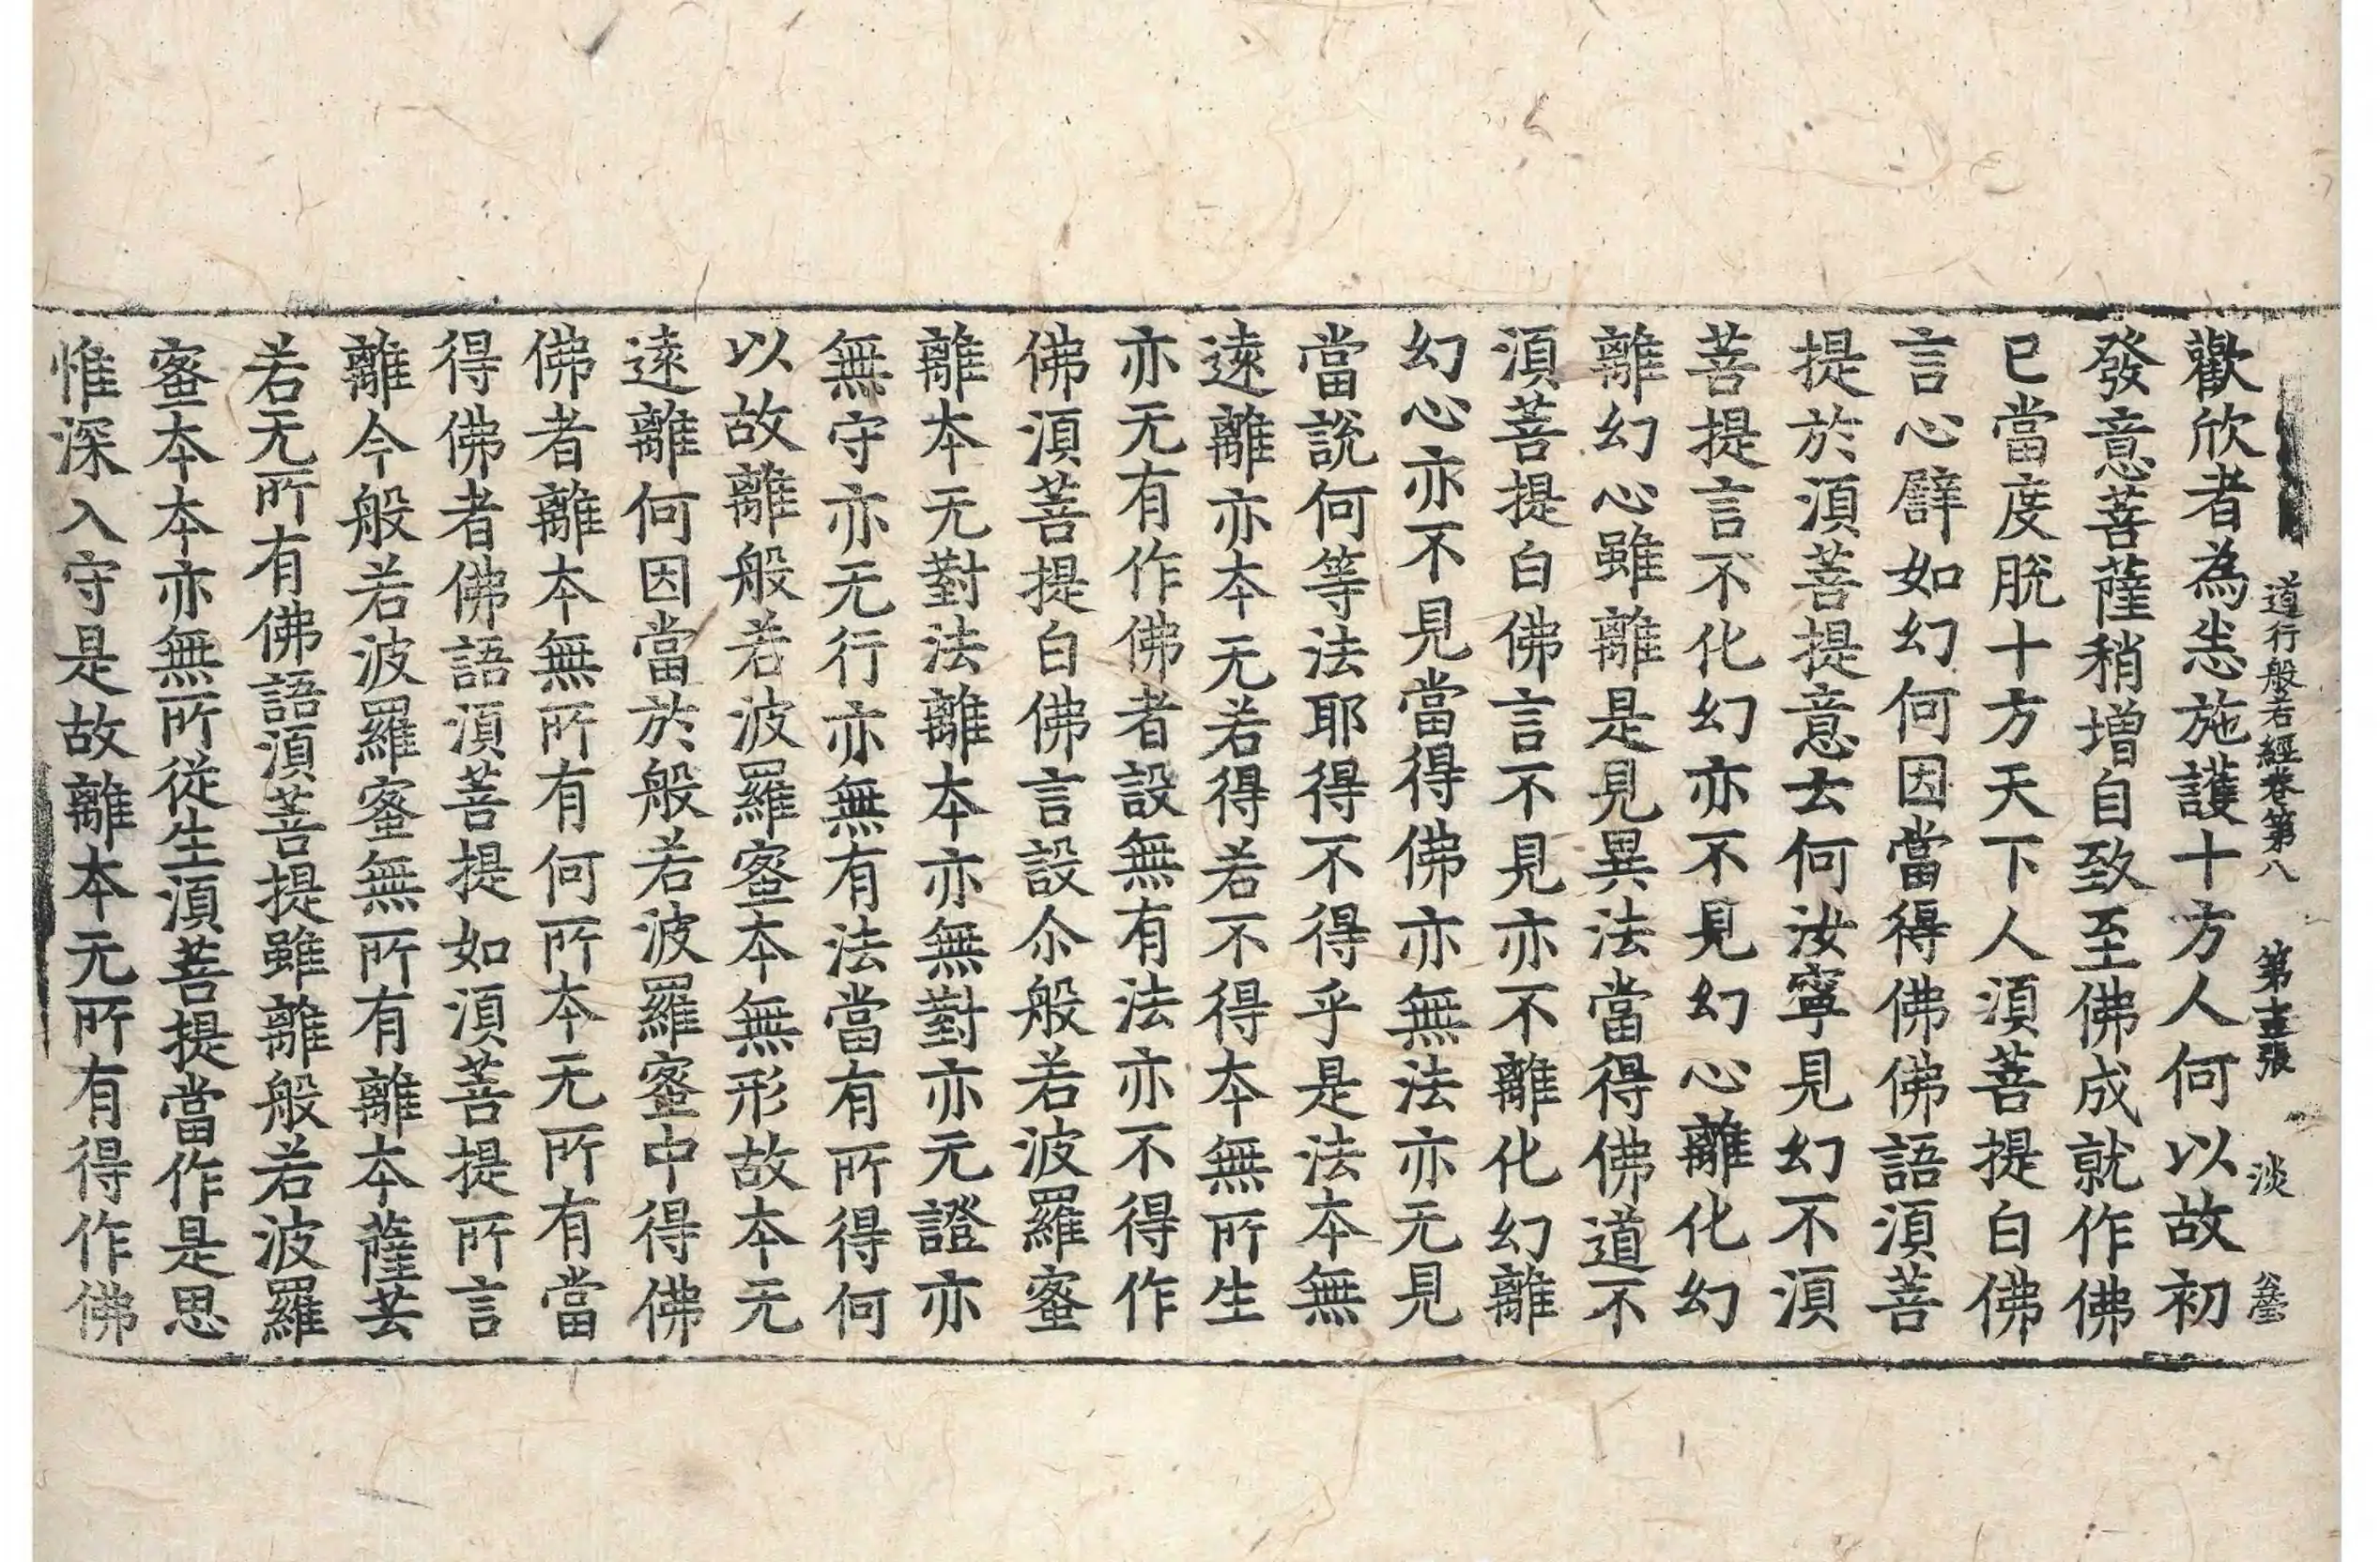 道行般若經卷第八 第十五張 淡
歡欣者為悉施護十方人何以故初
發意菩薩稍增自致至佛成就作佛
已當度脫十方天下人湏菩提白佛
言心譬如幻何因當得佛佛語湏菩
提於湏菩提意云何汝寧見幻不湏
菩提言不化幻亦不見幻心離化幻
離幻心雖離是見異法當得佛道不
湏菩提白佛言不見亦不離化幻離
幻心亦不見當得佛亦無法亦无見
當說何等法耶得不得乎是法本無
遠離亦本无若得若不得本無所生
亦无有作佛者設無有法亦不得作
佛湏菩提白佛言設尒般若波羅蜜
離本无對法離本亦無對亦无證亦
無守亦无行亦無有法當有所得何
以故離般若波羅蜜本無形故本无
遠離何因當於般若波羅蜜中得佛
佛者離本無所有何所本无所有當
得佛者佛語湏菩提如湏菩提所言
離今般若波羅蜜無所有離本薩芸
若无所有佛語湏菩提雖離般若波羅
蜜本本亦無所從生湏菩提當作是思
惟深入守是故離本无所有得作佛